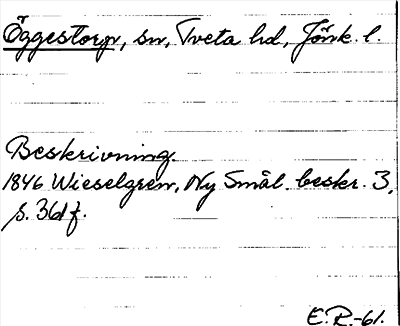 Öggestorp, sn, Tveta hd, Jönk. l.
Beskrivning.
1846 Wieselgren, Ny Smål. beskr. 3,
s. 361 f.
E.R.-61.